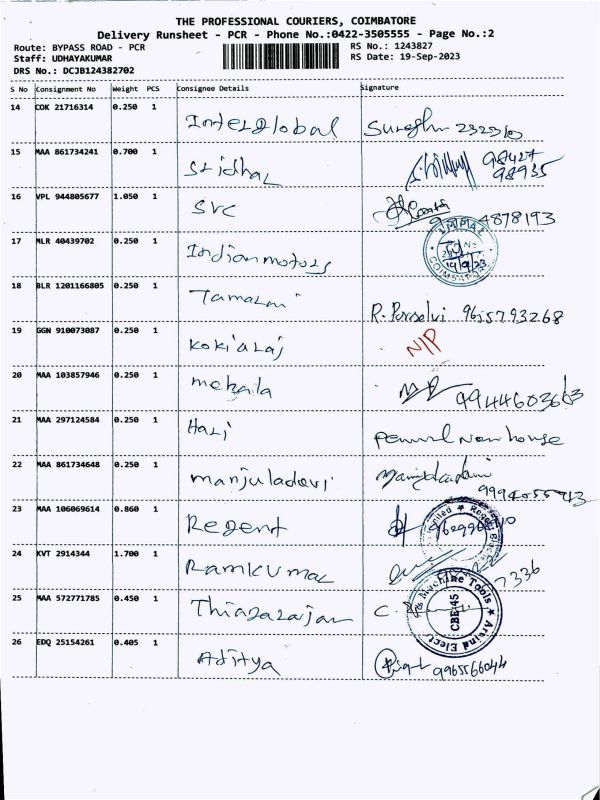 THE PROFESSIONAL COURIERS, COIMBATORE
Delivery Runsheet - PCR - Phone No.:0422-3505555 - Page No.:2
Route: BYPASS ROAD - PCR RS No.: 1243827
Staff: UDHAYAKUMAR RS Date: 19-Sep-2023
DRS No.: DCJB124382702
S No Consignment No Weight PCS Consignee Details Signature
14 COK 21716314 0.250 1 Interglobal
15 MAA 861734241 0.700 1 Sridhar 98427
98935
16 VPL 944805677 1.050 1 SVC 4878193
17 MLR 40439702 0.250 1 Indian motors IMPAL COIMBATORE 19/9/23
18 BLR 1201166805 0.250 1 R. Porselvi 9655793268
19 GGN 910073087 0.250 1 N/P
20 MAA 103857946 0.250 1 mekala
21 MAA 297124584 0.250 1 Hari house
22 MAA 861734648 0.250 1 manjuladevi
23 MAA 106069614 0.860 1 Regent
24 KVT 2914344 1.700 1 Ramkumar 7336
25 MAA 572771785 0.450 1 Thiagarajan C. Machine Tools Arvind Elect CBE-45
26 EDQ 25154261 0.405 1 Aditya 9965566044